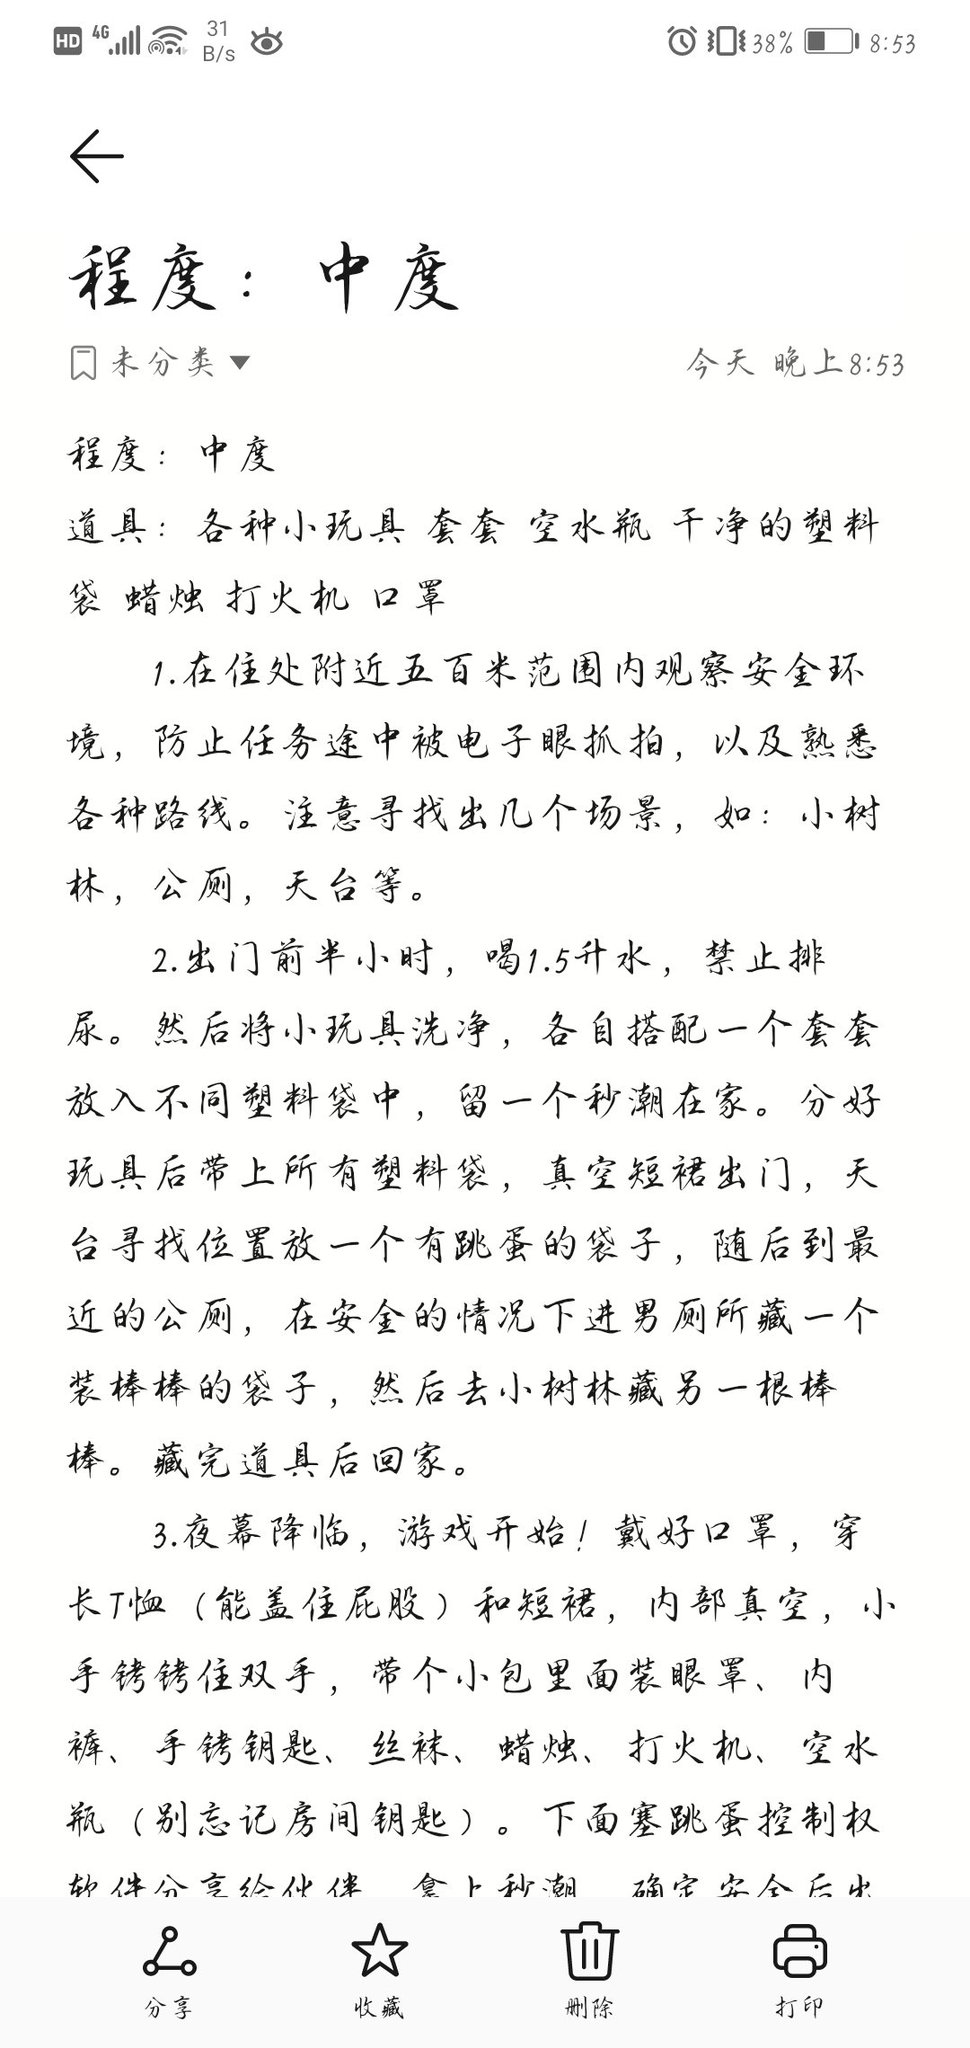 HD 4G 31 B/s 38% 8:53
程度：中度
未分类 今天 晚上8:53
程度：中度
道具：各种小玩具 套套 空水瓶 干净的塑料
袋 蜡烛 打火机 口罩
1.在住处附近五百米范围内观察安全环
境，防止任务途中被电子眼抓拍，以及熟悉
各种路线。注意寻找出几个场景，如：小树
林，公厕，天台等。
2.出门前半小时，喝1.5升水，禁止排
尿。然后将小玩具洗净，各自搭配一个套套
放入不同塑料袋中，留一个秒潮在家。分好
玩具后带上所有塑料袋，真空短裙出门，天
台寻找位置放一个有跳蛋的袋子，随后到最
近的公厕，在安全的情况下进男厕所藏一个
装棒棒的袋子，然后去小树林藏另一根棒
棒。藏完道具后回家。
3.夜幕降临，游戏开始！戴好口罩，穿
长T恤（能盖住屁股）和短裙，内部真空，小
手铐铐住双手，带个小包里面装眼罩、内
裤、手铐钥匙、丝袜、蜡烛、打火机、空水
瓶（别忘记房间钥匙）。下面塞跳蛋控制权
软件分享给伙伴，拿上秒潮，确定安全后出
分享 收藏 删除 打印